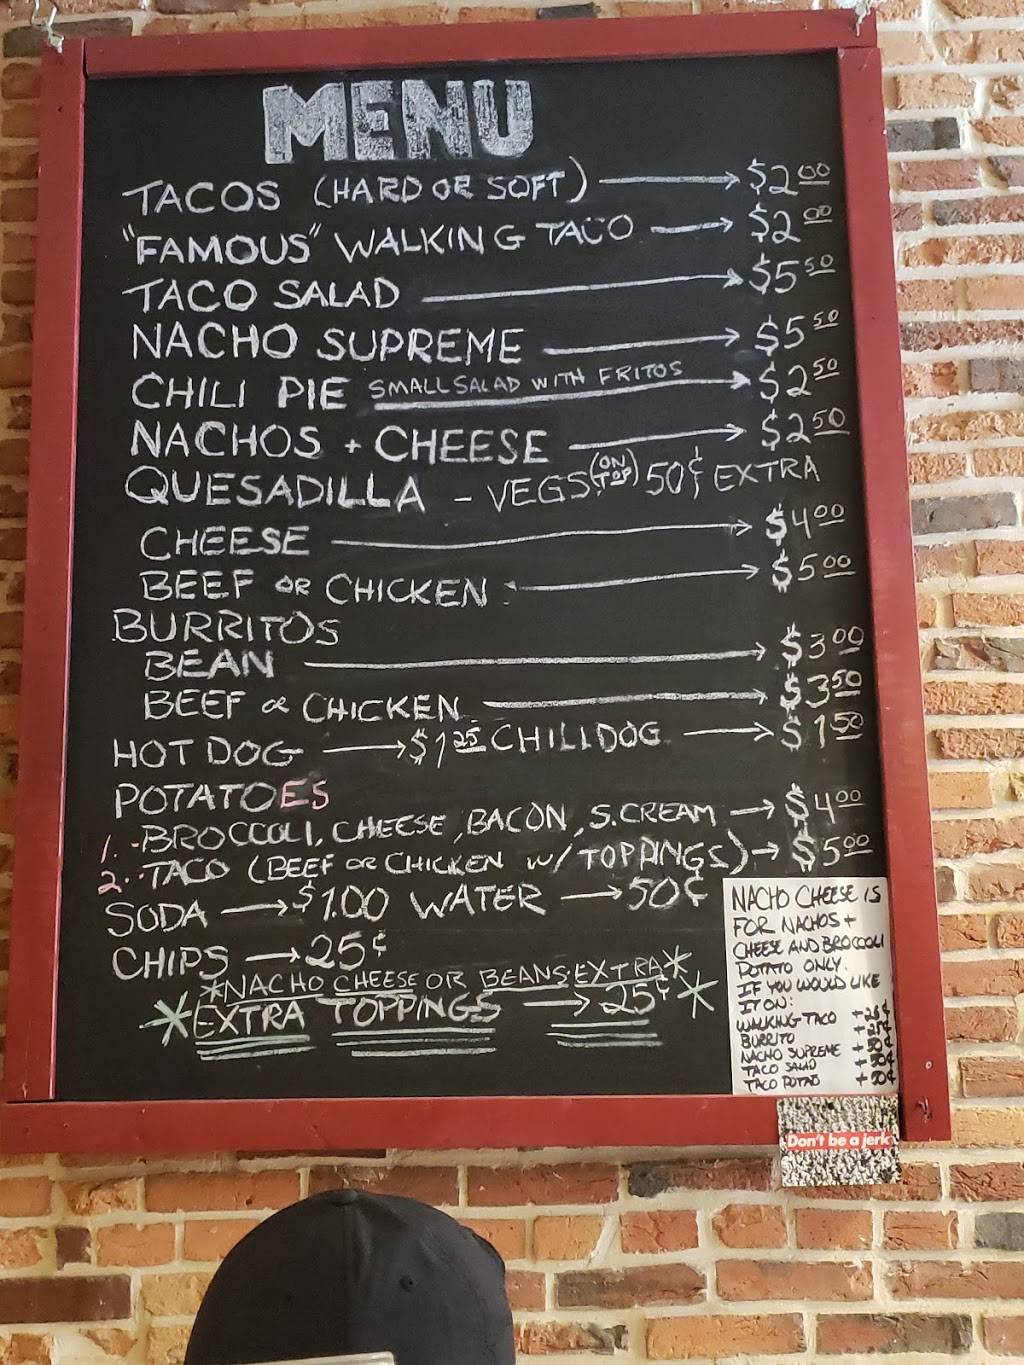 MENU
TACOS (HARD OR SOFT) → $2.00
"FAMOUS" WALKING TACO → $2.00
TACO SALAD → $5.50
NACHO SUPREME → $5.50
CHILI PIE SMALL SALAD WITH FRITOS → $2.50
NACHOS + CHEESE → $2.50
QUESADILLA - VEGS. (ON TOP) 50¢ EXTRA
CHEESE → $4.00
BEEF OR CHICKEN → $5.00
BURRITOS
BEAN → $3.00
BEEF OR CHICKEN → $3.50
HOT DOG → $1.25 CHILI DOG → $1.50
POTATOES
1. - BROCCOLI, CHEESE, BACON, S. CREAM → $4.00
2. - TACO (BEEF OR CHICKEN W/ TOPPINGS) → $5.00
SODA → $1.00 WATER → 50¢
CHIPS → 25¢
*NACHO CHEESE OR BEANS EXTRA*
*EXTRA TOPPINGS → 25¢ *
NACHO CHEESE IS
FOR NACHOS +
CHEESE AND BROCCOLI
POTATO ONLY.
IF YOU WOULD LIKE
IT ON:
WALKING TACO
BURRITO
NACHO SUPREME
TACO SALAD
TACO POTATO
Don't be a jerk